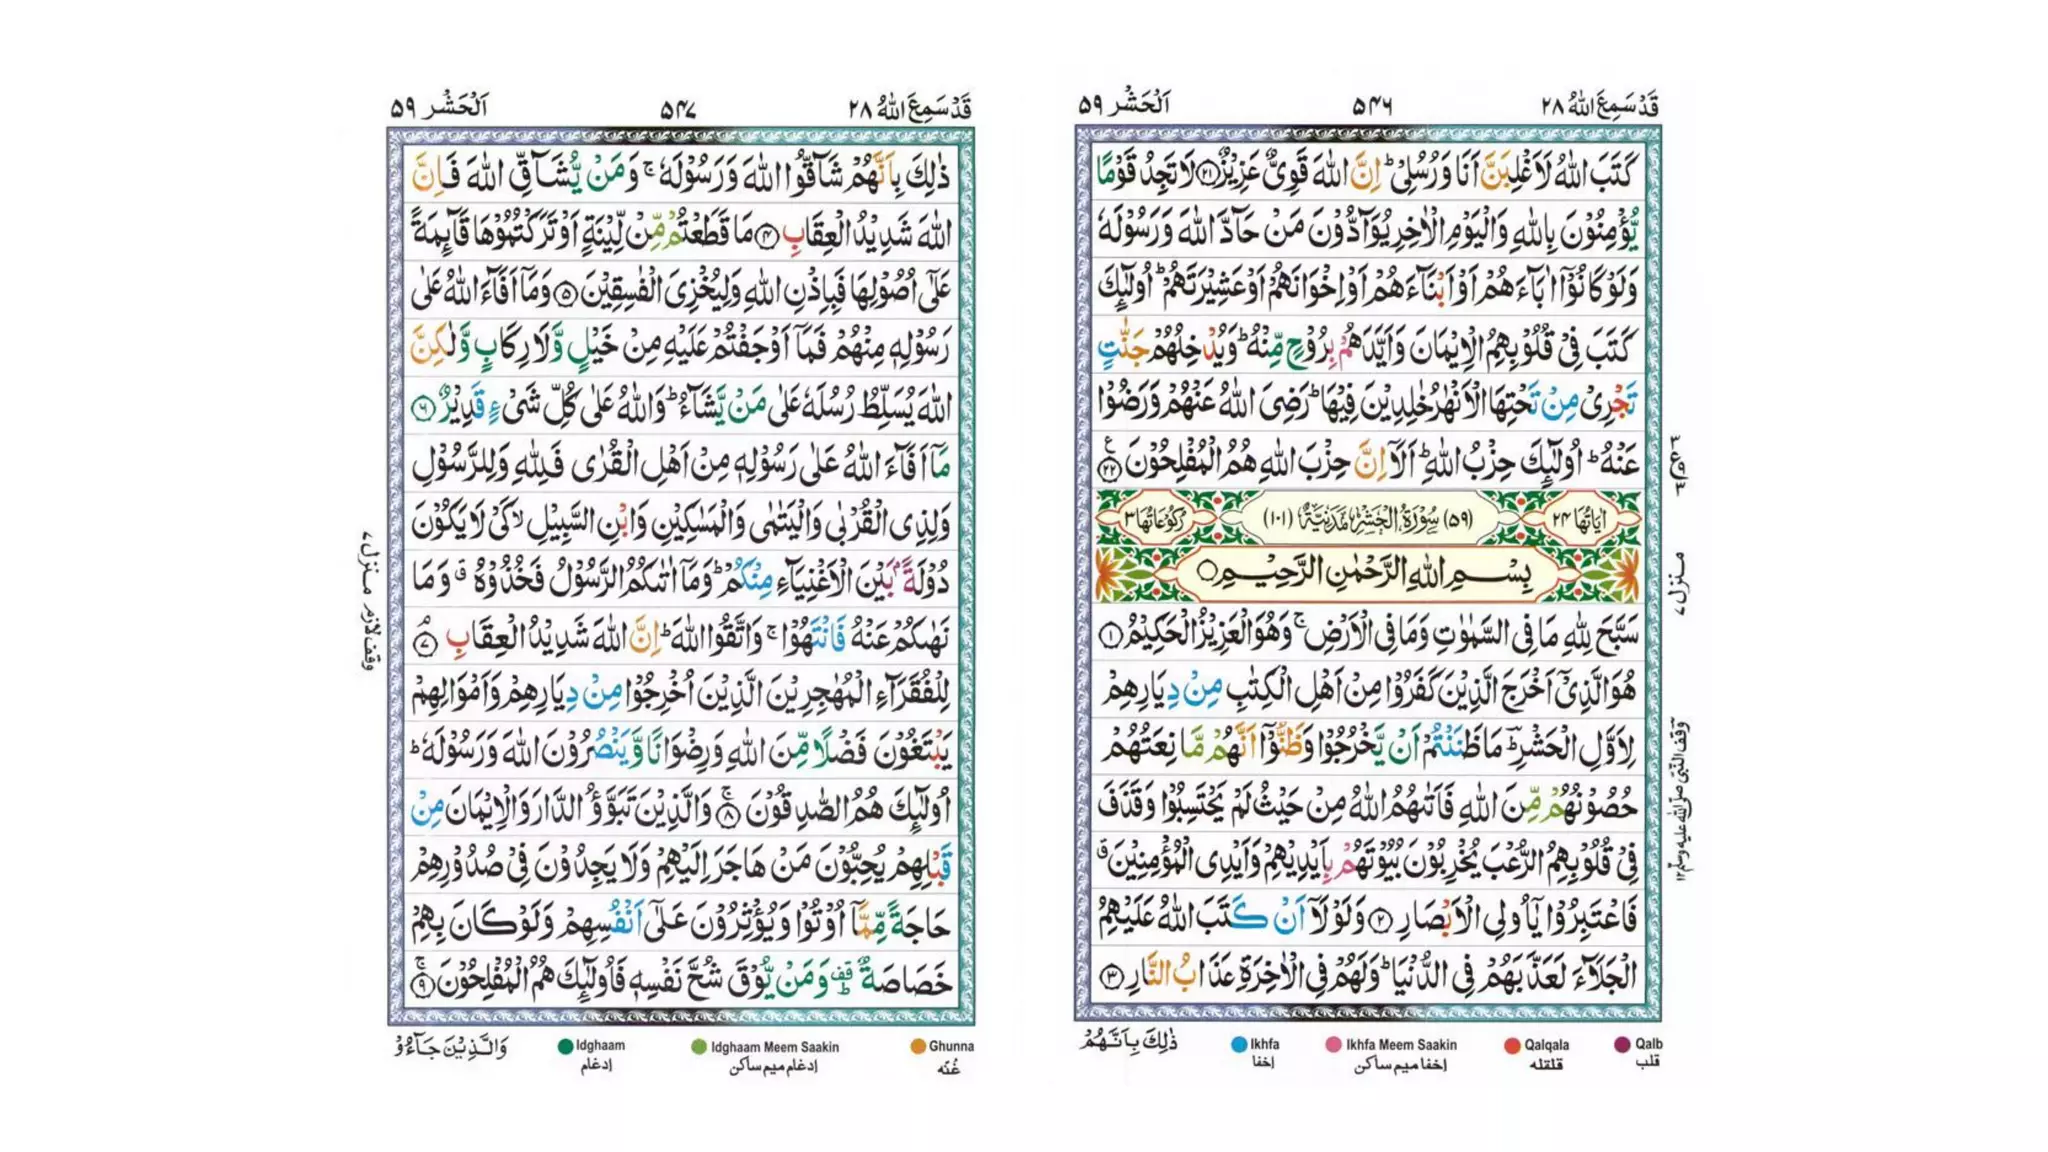 قَدْ سَمِعَ اللّٰهُ ٢٨
۵۴۶
اَلْحَشْر ۵۹
كَتَبَ اللّٰهُ لَاَغْلِبَنَّ اَنَا وَرُسُلِیْ ؕ اِنَّ اللّٰهَ قَوِیٌّ عَزِیْزٌ ﴿۲۱﴾ لَا تَجِدُ قَوْمًا
یُّؤْمِنُوْنَ بِاللّٰهِ وَالْیَوْمِ الْاٰخِرِ یُوَآدُّوْنَ مَنْ حَآدَّ اللّٰهَ وَرَسُوْلَهٗ
وَلَوْ كَانُوْۤا اٰبَآءَهُمْ اَوْ اَبْنَآءَهُمْ اَوْ اِخْوَانَهُمْ اَوْ عَشِیْرَتَهُمْ ؕ اُولٰٓىِٕكَ
كَتَبَ فِیْ قُلُوْبِهِمُ الْاِیْمَانَ وَاَیَّدَهُمْ بِرُوْحٍ مِّنْهُ ؕ وَیُدْخِلُهُمْ جَنّٰتٍ
تَجْرِیْ مِنْ تَحْتِهَا الْاَنْهٰرُ خٰلِدِیْنَ فِیْهَا ؕ رَضِیَ اللّٰهُ عَنْهُمْ وَرَضُوْا
عَنْهُ ؕ اُولٰٓىِٕكَ حِزْبُ اللّٰهِ ؕ اَلَاۤ اِنَّ حِزْبَ اللّٰهِ هُمُ الْمُفْلِحُوْنَ ﴿۲۲﴾ ع
اٰیَاتُهَا ۲۴
(۵۹) سُوْرَةُ الْحَشْرِ مَدَنِیَّةٌ (۱۰۱)
رُكُوْعَاتُهَا ۳
بِسْمِ اللّٰهِ الرَّحْمٰنِ الرَّحِیْمِ
سَبَّحَ لِلّٰهِ مَا فِی السَّمٰوٰتِ وَمَا فِی الْاَرْضِ ۚ وَهُوَ الْعَزِیْزُ الْحَكِیْمُ ﴿۱﴾
هُوَ الَّذِیْۤ اَخْرَجَ الَّذِیْنَ كَفَرُوْا مِنْ اَهْلِ الْكِتٰبِ مِنْ دِیَارِهِمْ
لِاَوَّلِ الْحَشْرِ ؔؕ مَا ظَنَنْتُمْ اَنْ یَّخْرُجُوْا وَظَنُّوْۤا اَنَّهُمْ مَّا نِعَتُهُمْ
حُصُوْنُهُمْ مِّنَ اللّٰهِ فَاَتٰىهُمُ اللّٰهُ مِنْ حَیْثُ لَمْ یَحْتَسِبُوْا وَقَذَفَ
فِیْ قُلُوْبِهِمُ الرُّعْبَ یُخْرِبُوْنَ بُیُوْتَهُمْ بِاَیْدِیْهِمْ وَاَیْدِی الْمُؤْمِنِیْنَ ۗ
فَاعْتَبِرُوْا یٰۤاُولِی الْاَبْصَارِ ﴿۲﴾ وَلَوْلَاۤ اَنْ كَتَبَ اللّٰهُ عَلَیْهِمُ
الْجَلَآءَ لَعَذَّبَهُمْ فِی الدُّنْیَا ؕ وَلَهُمْ فِی الْاٰخِرَةِ عَذَابُ النَّارِ ﴿۳﴾
ذٰلِكَ بِاَنَّهُمْ
Ikhfa
إخفا
Ikhfa Meem Saakin
إخفا میم ساکن
Qalqala
قلقله
Qalb
قلب
منزل ۷
وقف النبی صلی اللہ علیہ وسلم ۱۲
قَدْ سَمِعَ اللّٰهُ ٢٨
۵۴۷
اَلْحَشْر ۵۹
ذٰلِكَ بِاَنَّهُمْ شَآقُّوا اللّٰهَ وَرَسُوْلَهٗ ۚ وَمَنْ یُّشَآقِّ اللّٰهَ فَاِنَّ
اللّٰهَ شَدِیْدُ الْعِقَابِ ﴿۴﴾ مَا قَطَعْتُمْ مِّنْ لِّیْنَةٍ اَوْ تَرَكْتُمُوْهَا قَآىِٕمَةً
عَلٰۤی اُصُوْلِهَا فَبِاِذْنِ اللّٰهِ وَلِیُخْزِیَ الْفٰسِقِیْنَ ﴿۵﴾ وَمَاۤ اَفَآءَ اللّٰهُ عَلٰی
رَسُوْلِهٖ مِنْهُمْ فَمَاۤ اَوْجَفْتُمْ عَلَیْهِ مِنْ خَیْلٍ وَّلَا رِكَابٍ وَّلٰكِنَّ
اللّٰهَ یُسَلِّطُ رُسُلَهٗ عَلٰی مَنْ یَّشَآءُ ؕ وَاللّٰهُ عَلٰی كُلِّ شَیْءٍ قَدِیْرٌ ﴿۶﴾
مَاۤ اَفَآءَ اللّٰهُ عَلٰی رَسُوْلِهٖ مِنْ اَهْلِ الْقُرٰی فَلِلّٰهِ وَلِلرَّسُوْلِ
وَلِذِی الْقُرْبٰی وَالْیَتٰمٰی وَالْمَسٰكِیْنِ وَابْنِ السَّبِیْلِ ۙ كَیْ لَا یَكُوْنَ
دُوْلَةًۢ بَیْنَ الْاَغْنِیَآءِ مِنْكُمْ ؕ وَمَاۤ اٰتٰىكُمُ الرَّسُوْلُ فَخُذُوْهُ ۗ وَمَا
نَهٰىكُمْ عَنْهُ فَانْتَهُوْا ۚ وَاتَّقُوا اللّٰهَ ؕ اِنَّ اللّٰهَ شَدِیْدُ الْعِقَابِ ﴿۷﴾
لِلْفُقَرَآءِ الْمُهٰجِرِیْنَ الَّذِیْنَ اُخْرِجُوْا مِنْ دِیَارِهِمْ وَاَمْوَالِهِمْ
یَبْتَغُوْنَ فَضْلًا مِّنَ اللّٰهِ وَرِضْوَانًا وَّیَنْصُرُوْنَ اللّٰهَ وَرَسُوْلَهٗ ؕ
اُولٰٓىِٕكَ هُمُ الصّٰدِقُوْنَ ﴿۸﴾ ۚ وَالَّذِیْنَ تَبَوَّؤُ الدَّارَ وَالْاِیْمَانَ مِنْ
قَبْلِهِمْ یُحِبُّوْنَ مَنْ هَاجَرَ اِلَیْهِمْ وَلَا یَجِدُوْنَ فِیْ صُدُوْرِهِمْ
حَاجَةً مِّمَّاۤ اُوْتُوْا وَیُؤْثِرُوْنَ عَلٰۤی اَنْفُسِهِمْ وَلَوْ كَانَ بِهِمْ
خَصَاصَةٌ ؕ قف وَمَنْ یُّوْقَ شُحَّ نَفْسِهٖ فَاُولٰٓىِٕكَ هُمُ الْمُفْلِحُوْنَ ﴿۹﴾ ۚ
وَالَّذِیْنَ جَآءُوْ
Idghaam
إدغام
Idghaam Meem Saakin
إدغام میم ساکن
Ghunna
غُنّه
منزل ۷
وقف لازم